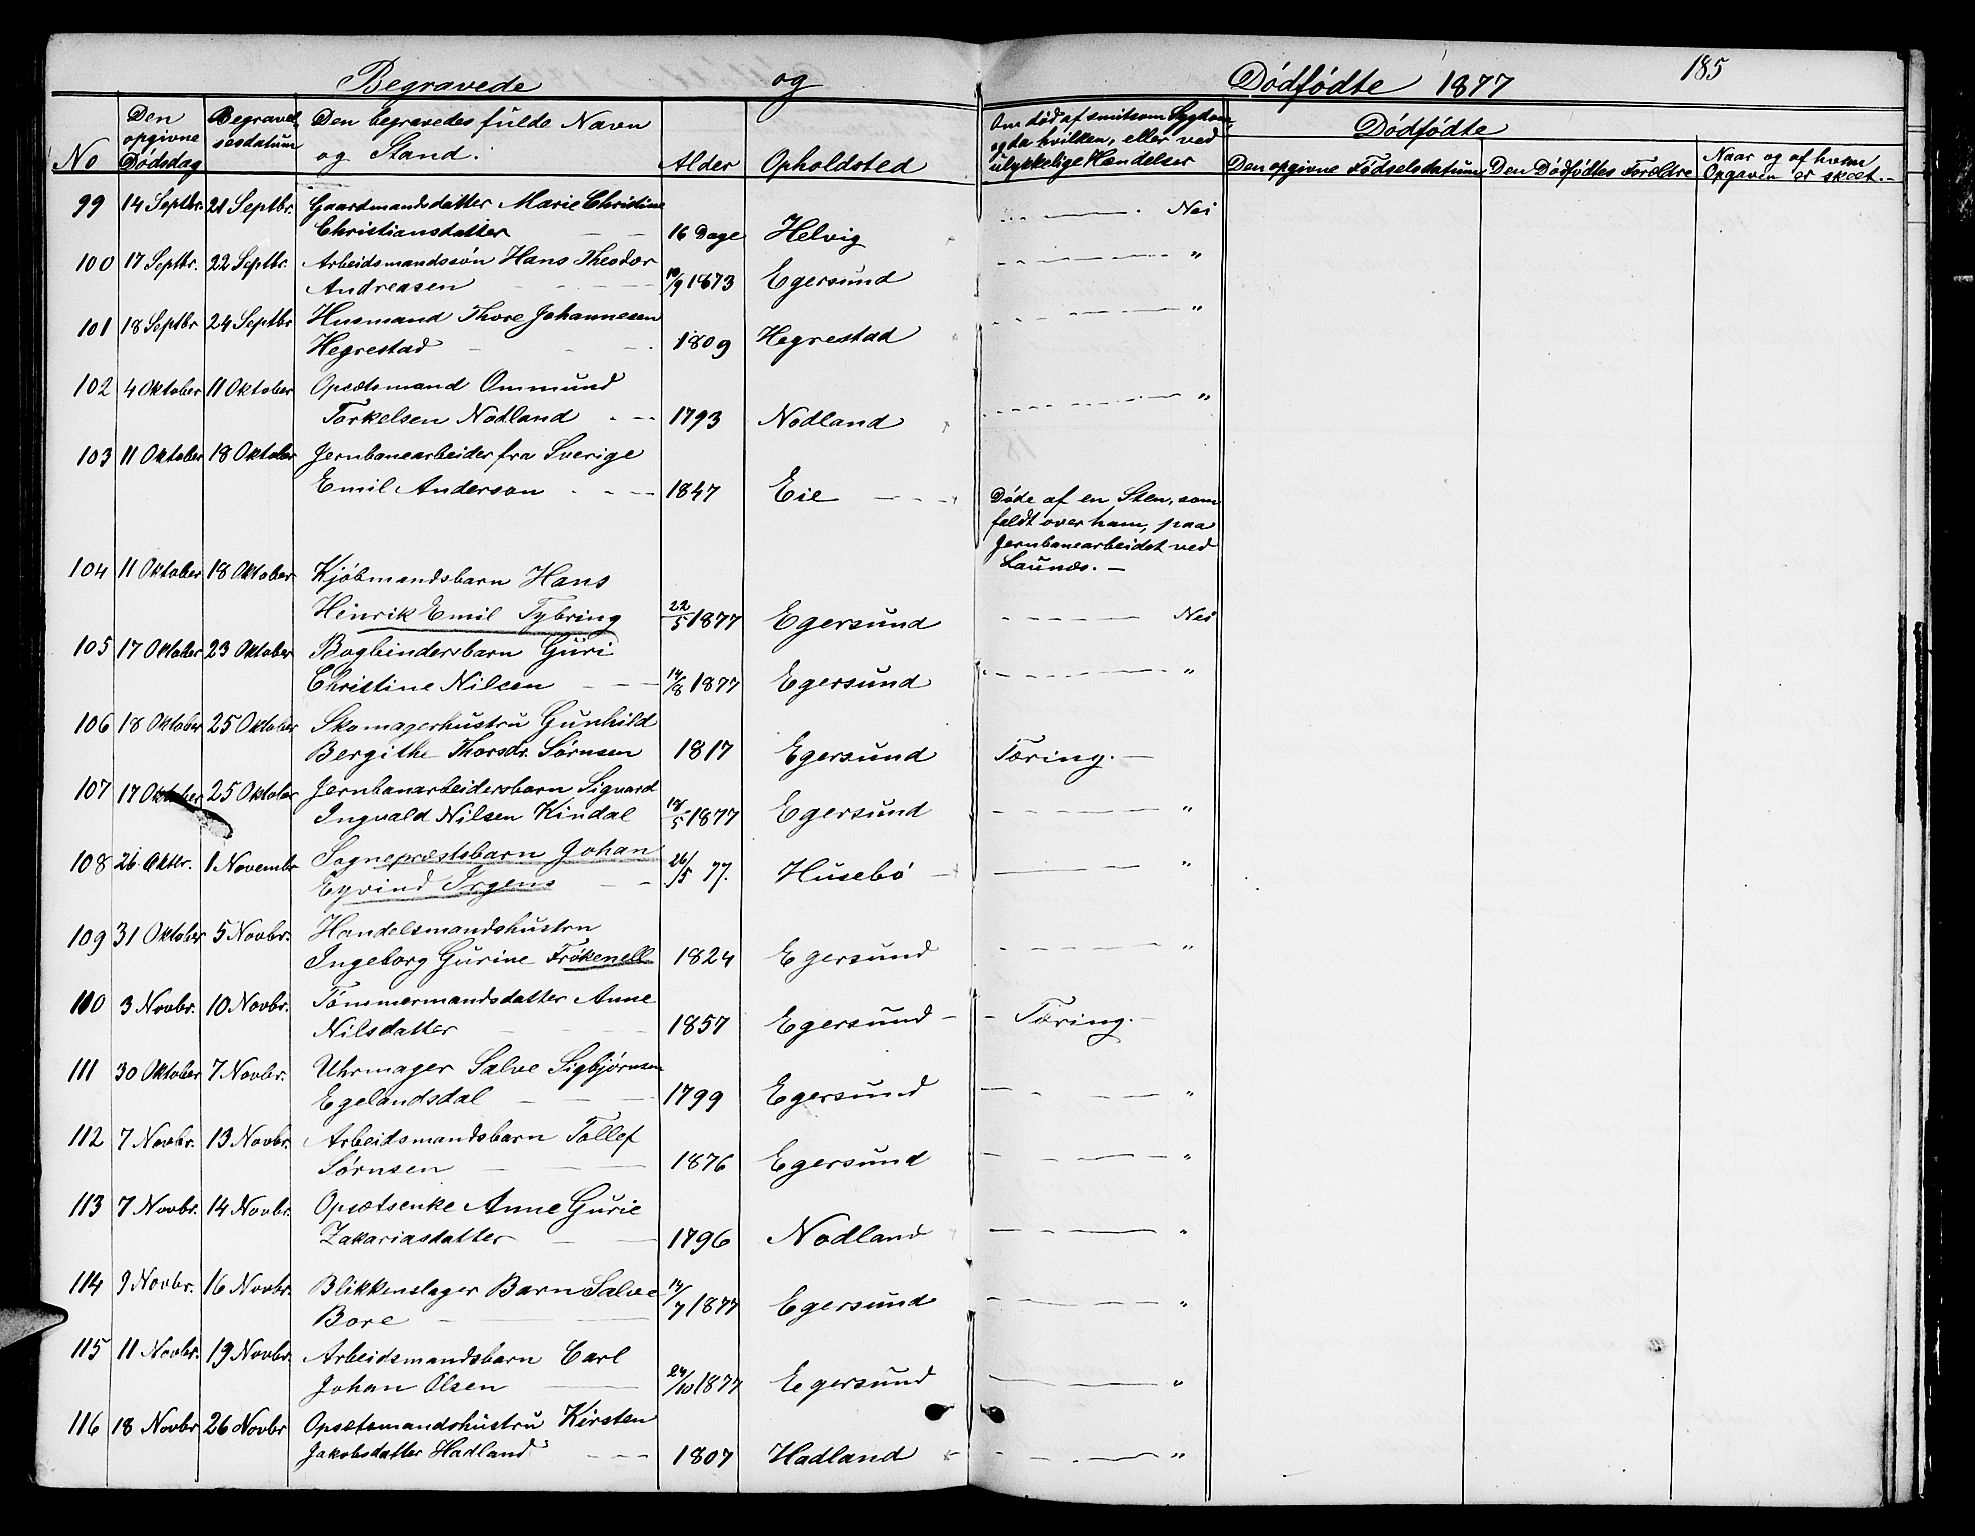 Begravede og Dødfødte 1877 185
No
Den opgivne Dødsdag
Begravelsesdatum
Den begravedes fulde Navn og Stand.
Alder
Opholdsted
Om død af smitsom Sygdom, og da hvilken, eller ved ulykkelige Hændelser
Dødfødte
Den opgivne Fødselsdatum
Den Dødfødtes Forældre
Naar og af hvem Opgaven er skeet.
99 14 Septbr. 21 Septbr. Gaardmandsdatter Marie Christine
Christiansdatter 16 Dage Helvig Nei
100 17 Septbr. 22 Septbr. Arbeidsmandssøn Hans Theodor
Andreasen 10/9 1873 Egersund "
101 18 Septbr 24 Septbr Husmand Thore Johannesen
Hegrestad 1809 Hegrestad "
102 4 Oktober 11 Oktober Opsætsmand Ommund
Torkelsen Nodland 1793 Nodland "
103 11 Oktober 18 Oktober Jernbanearbeider fra Sverige
Emil Anderson 1847 Eie Døde af en Sten, som
faldt over ham, paa
Jernbanearbeidet ved
Launes.
104 11 Oktober 18 Oktober Kjøbmandsbarn Hans
Hinrik Emil Tybring 22/5 1877 Egersund Nei
105 17 Oktober 23 Oktober Bogbindersbarn Guri
Christine Nilsen 14/8 1877 Egersund "
106 18 Oktober 25 Oktober Skomagerhustru Gunhild
Bergithe Thorsdr. Sørnsen 1817 Egersund Tæring.
107 17 Oktober 25 Oktober Jernbanarbeidersbarn Sigvard
Ingvald Nilsen Kindal 18/5 1877 Egersund "
108 26 Oktbr. 1 Novembr Sognepræstsbarn Johan
Eyvind Irgens 26/5 77. Husebø "
109 31 Oktober 5 Novbr. Handelsmandshustru
Ingeborg Gurine Frøkenell 1824 Egersund "
110 3 Novbr. 10 Novbr. Tømmermandsdatter Anne
Nilsdatter 1857 Egersund Tæring.
111 30 Oktober 7 Novbr. Uhrmager Salve Sigbjørnsen
Egelandsdal 1799 Egersund "
112 7 Novbr. 13 Novbr. Arbeidsmandsbarn Tollef
Sørnsen 1876 Egersund "
113 7 Novbr. 14 Novbr. Opsætsenke Anne Gurie
Zakariasdatter 1796 Nodland "
114 9 Novbr. 16 Novbr. Blikkenslager Barn Salve
Bore 14/7 1877 Egersund "
115 11 Novbr. 19 Novbr. Arbeidsmandsbarn Carl
Johan Olsen 24/10 1877 Egersund "
116 18 Novbr 26 Novbr Opsætsmandshustru Kirsten
Jakobsdatter Hadland 1807 Hadland "